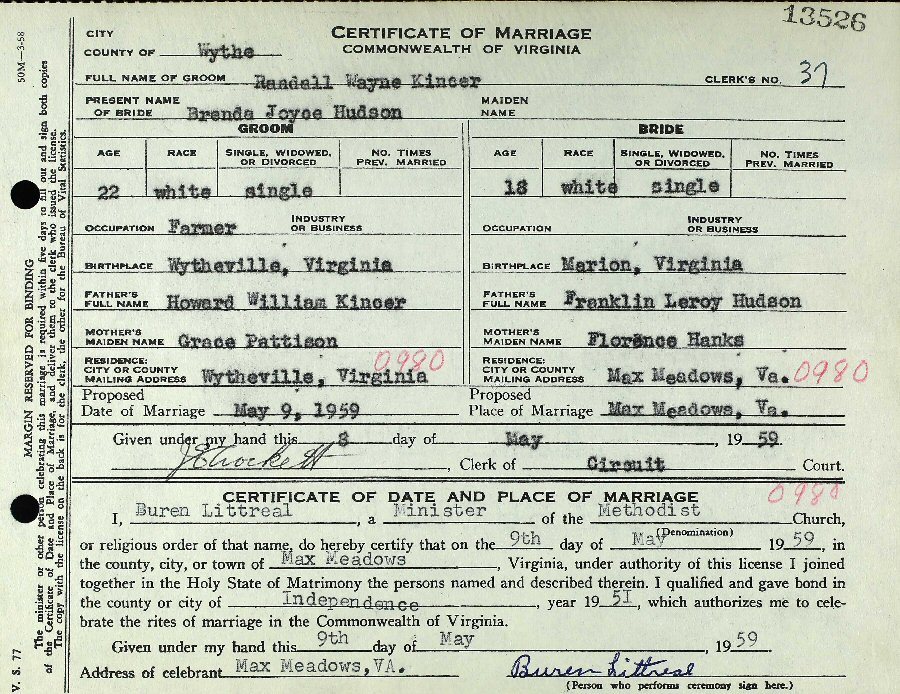 13526
CITY
COUNTY OF Wythe
CERTIFICATE OF MARRIAGE
COMMONWEALTH OF VIRGINIA
FULL NAME OF GROOM Randall Wayne Kincer CLERK'S NO. 37
PRESENT NAME OF BRIDE Brenda Joyce Hudson MAIDEN NAME
GROOM BRIDE
AGE RACE SINGLE, WIDOWED, OR DIVORCED NO. TIMES PREV. MARRIED AGE RACE SINGLE, WIDOWED, OR DIVORCED NO. TIMES PREV. MARRIED
22 white single 18 white single
OCCUPATION Farmer INDUSTRY OR BUSINESS OCCUPATION INDUSTRY OR BUSINESS
BIRTHPLACE Wytheville, Virginia BIRTHPLACE Marion, Virginia
FATHER'S FULL NAME Howard William Kincer FATHER'S FULL NAME Franklin Leroy Hudson
MOTHER'S MAIDEN NAME Grace Pattison MOTHER'S MAIDEN NAME Florence Hanks
RESIDENCE: CITY OR COUNTY MAILING ADDRESS Wytheville, Virginia 0980 RESIDENCE: CITY OR COUNTY MAILING ADDRESS Max Meadows, Va. 0980
Proposed Date of Marriage May 9, 1959 Proposed Place of Marriage Max Meadows, Va.
Given under my hand this 8 day of May, 1959
JECrockett, Clerk of Circuit Court.
CERTIFICATE OF DATE AND PLACE OF MARRIAGE 0980
I, Buren Littreal, a Minister of the Methodist Church,
(Denomination)
or religious order of that name, do hereby certify that on the 9th day of May 1959, in
the county, city, or town of Max Meadows, Virginia, under authority of this license I joined
together in the Holy State of Matrimony the persons named and described therein. I qualified and gave bond in
the county or city of Independence, year 1951, which authorizes me to cele-
brate the rites of marriage in the Commonwealth of Virginia.
Given under my hand this 9th day of May, 1959
Address of celebrant Max Meadows, VA. Buren Littreal
(Person who performs ceremony sign here.)
V. S. 77 MARGIN RESERVED FOR BINDING 50M—3-58
The minister or other person celebrating this marriage is required within five days to fill out and sign both copies
of the Certificate of Date and Place of Marriage, and deliver them to the clerk who issued the license.
The copy with the license on the back is for the clerk, the other for the Bureau of Vital Statistics.